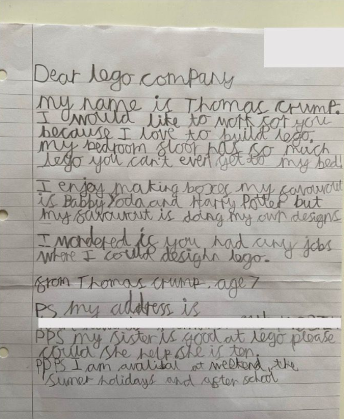 Dear lego company
my name is Thomas Crump.
I would like to work for you
because I love to build lego.
my bedroom floor has so much
lego you can't even get to my bed!
I enjoy making boxes my favourit
is Babby Yoda and Harry Potter but
my favourit is doing my own designs
I wondered if you had any jobs
where I could design lego.
from Thomas Crump, age 7
PS my address is
PPS my sister is good at lego please
could she help she is ten.
PPPS I am avalibal at weekend, the
sumer holidays and after school